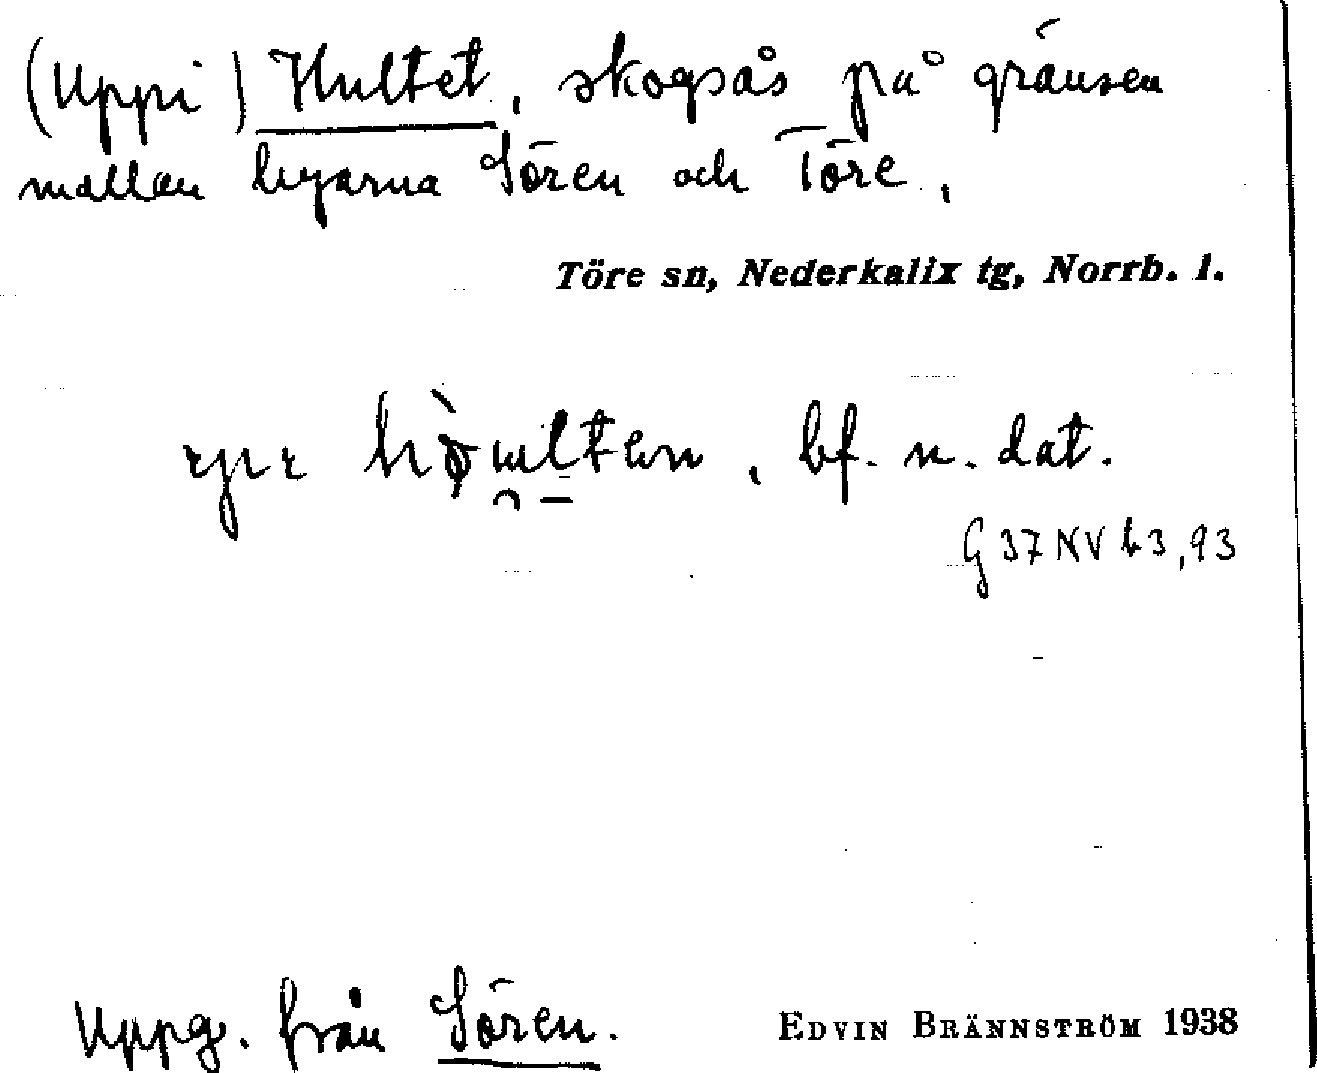 (Uppi) Hultet, skogsås på gränsen
mellan byarna Sören och Töre.
Töre sn, Nederkalix tg, Norrb. l.
bf. n. dat.
G 37 NV b3,93
Uppg. från Sören.
EDVIN BRÄNNSTRÖM 1938